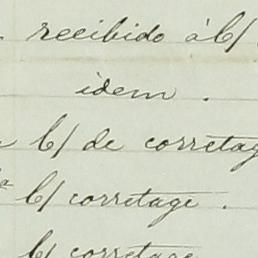 recibido á b/
idem .
b/ de corretag
b/ corretage .
b/ corretage